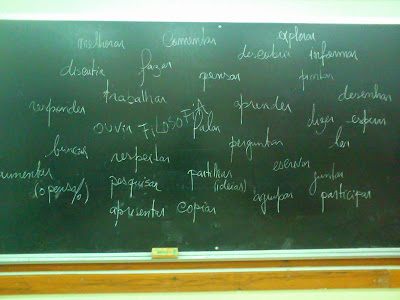 melhorar comentar explorar
discutir fazer descobrir informar
pensar pintar
trabalhar desenhar
responder aprender
ouvir FILOSOFIA falar dizer
brincar perguntar ler
respeitar escrever
aumentar partilhar juntar
(o pensa/o) pesquisar (ideias) agrupar participar
apresentar copiar